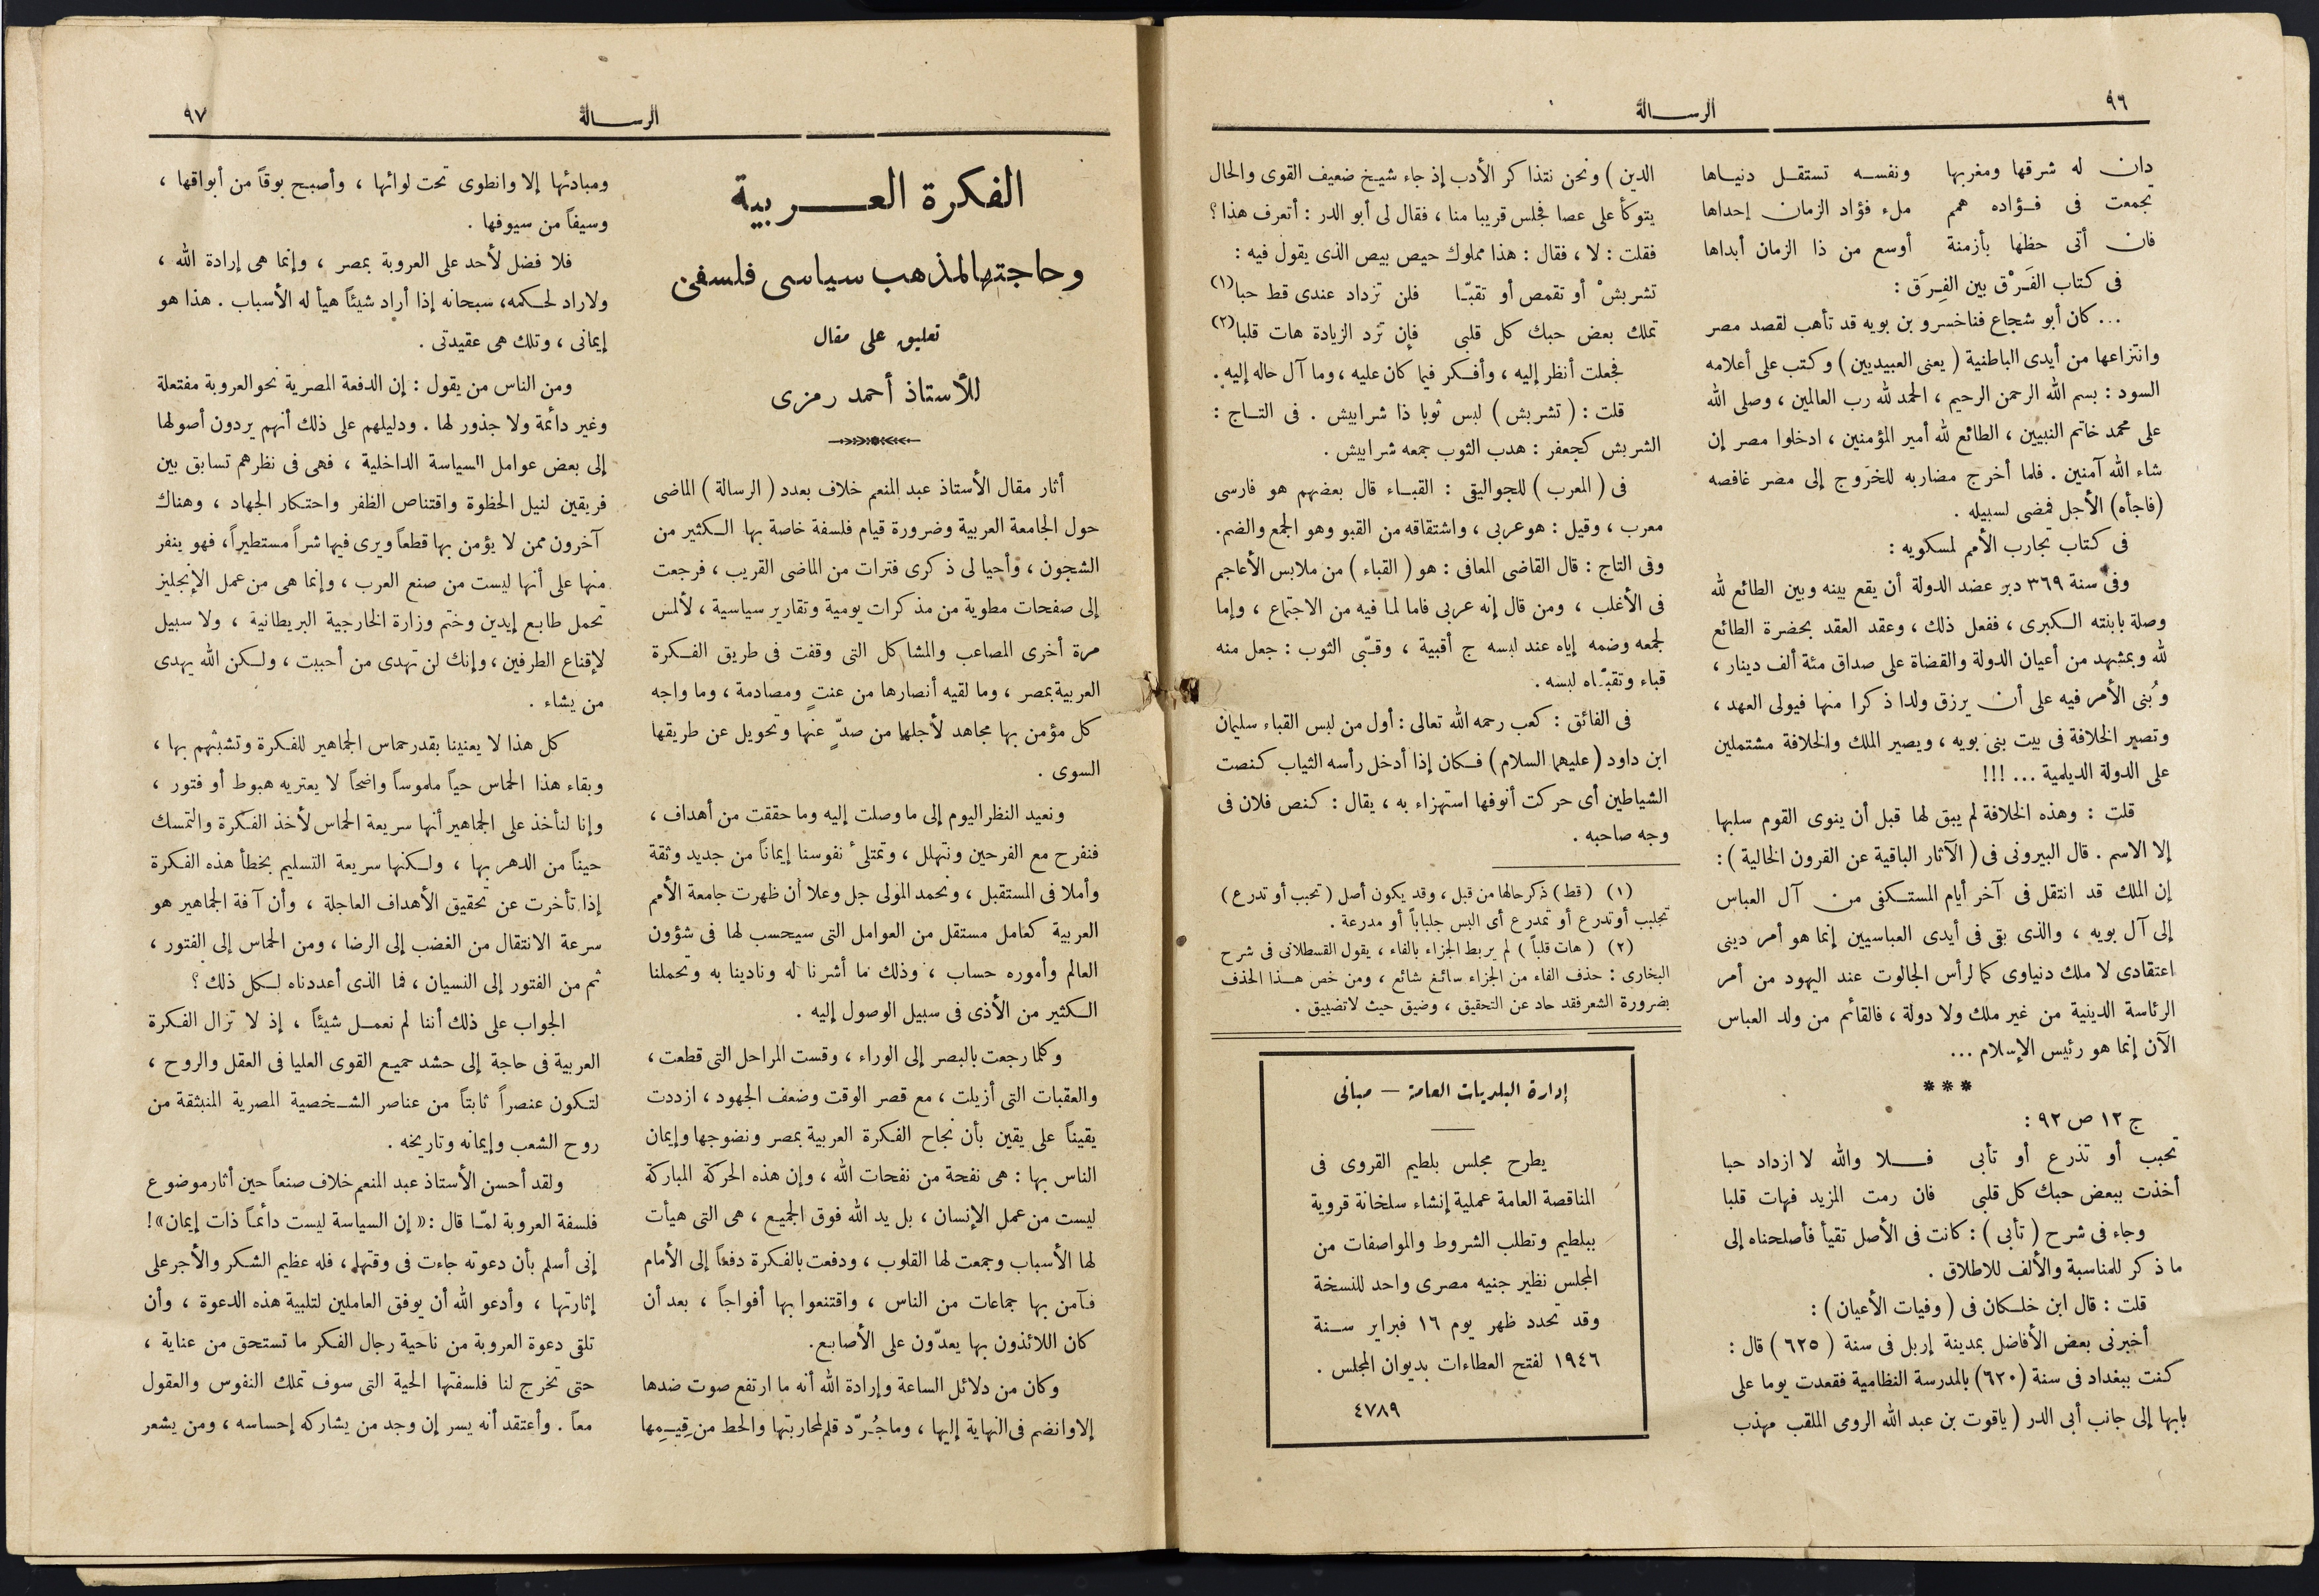 ٩٦
الرسالة
دان له شرقها ومغربها ونفسه تستقل دنياها
تجمعت فى فؤاده همم ملء فؤاد الزمان إحداها
فان أتى حظها بأزمنة أوسع من ذا الزمان أبداها
فى كتاب الفَرْق بين الفِرَق :
... كان أبو شجاع فناخسرو بن بويه قد تأهب لقصد مصر
وانتزاعها من أيدى الباطنية ( يعنى العبيديين ) وكتب على أعلامه
السود : بسم الله الرحمن الرحيم ، الحمد لله رب العالمين ، وصلى الله
على محمد خاتم النبيين ، الطائع لله أمير المؤمنين ، ادخلوا مصر إن
شاء الله آمنين . فلما أخرج مضاربه للخروج إلى مصر غافصه
(فاجأه) الأجل فمضى لسبيله .
فى كتاب تجارب الأمم لمسكويه :
وفى سنة ٣٦٩ دبر عضد الدولة أن يقع بينه وبين الطائع لله
وصلة بابنته الكبرى ، ففعل ذلك ، وعقد العقد بحضرة الطائع
لله وبمشهد من أعيان الدولة والقضاة على صداق مئة ألف دينار ،
وبُنى الأمر فيه على أن يرزق ولدا ذكرا منها فيولى العهد ،
وتصير الخلافة فى بيت بنى بويه ، ويصير الملك والخلافة مشتملين
على الدولة الديلمية ... !!!
قلت : وهذه الخلافة لم يبق لها قبل أن ينوى القوم سلبها
إلا الاسم . قال البيرونى فى ( الآثار الباقية عن القرون الخالية ) :
إن الملك قد انتقل فى آخر أيام المستكفى من آل العباس
إلى آل بويه ، والذى بقى فى أيدى العباسيين إنما هو أمر دينى
اعتقادى لا ملك دنياوى كما لرأس الجالوت عند اليهود من أمر
الرئاسة الدينية من غير ملك ولا دولة ، فالقائم من ولد العباس
الآن إنما هو رئيس الإسلام ...
***
ج ١٢ ص ٩٢ :
تحبب أو تذرع أو تأبى فلا والله لا ازداد حبا
أخذت ببعض حبك كل قلبى فان رمت المزيد فهات قلبا
وجاء فى شرح ( تأبى ) : كانت فى الأصل تقيأ فأصلحناه إلى
ما ذكر للمناسبة والألف للاطلاق .
قلت : قال ابن خلكان فى ( وفيات الأعيان ) :
أخبرنى بعض الأفاضل بمدينة إربل فى سنة ( ٦٢٥ ) قال :
كنت ببغداد فى سنة (٦٢٠) بالمدرسة النظامية فقعدت يوما على
بابها إلى جانب أبى الدر ( ياقوت بن عبد الله الرومى الملقب مهذب
الدين ) ونحن نتذاكر الأدب إذ جاء شيخ ضعيف القوى والحال
يتوكأ على عصا فجلس قريبا منا ، فقال لى أبو الدر : أتعرف هذا ؟
فقلت : لا ، فقال : هذا مملوك حيص بيص الذى يقول فيه :
تشربشْ أو تقمص أو تقبّا فلن تزداد عندى قط حبا (١)
تملك بعض حبك كل قلبى فإن تزد الزيادة هات قلبا (٢)
فجعلت أنظر إليه ، وأفكر فيما كان عليه ، وما آل حاله إليه .
قلت : ( تشربش ) لبس ثوبا ذا شرابيش . فى التاج :
الشربش كجعفر : هدب الثوب جمعه شرابيش .
فى ( المعرب ) للجواليقى : القباء قال بعضهم هو فارسى
معرب ، وقيل : هو عربى ، واشتقاقه من القبو وهو الجمع والضم.
وفى التاج : قال القاضى المعافى : هو ( القباء ) من ملابس الأعاجم
فى الأغلب ، ومن قال إنه عربى فاما لما فيه من الاجتماع ، وإما
لجمعه وضمه إياه عند لبسه ج أقبية ، وقبّى الثوب : جعل منه
قباء وتقبّاه لبسه .
فى الفائق : كعب رحمه الله تعالى : أول من لبس القباء سليمان
ابن داود ( عليهما السلام ) فكان إذا أدخل رأسه الثياب كنصت
الشياطين أى حركت أنوفها استهزاء به ، يقال : كنص فلان فى
وجه صاحبه .
(١) ( قط ) ذكر حالها من قبل ، وقد يكون أصل ( تحبب أو تدرع )
تجلبب أو تدرع أو تمدرع أى البس جلباباً أو مدرعة .
(٢) ( هات قلباً ) لم يربط الجزاء بالفاء ، يقول القسطلانى فى شرح
البخارى : حذف الفاء من الجزاء سائغ شائع ، ومن خص هذا الحذف
بضرورة الشعر فقد حاد عن التحقيق ، وضيق حيث لاتضييق .
إدارة البلديات العامة — مبانى
يطرح مجلس بلطيم القروى فى
المناقصة العامة عملية إنشاء سلخانة قروية
ببلطيم وتطلب الشروط والمواصفات من
المجلس نظير جنيه مصرى واحد للنسخة
وقد تحدد ظهر يوم ١٦ فبراير سنة
١٩٤٦ لفتح العطاءات بديوان المجلس .
٤٧٨٩
الرسالة
٩٧
الفكرة العربية
وحاجتها لمذهب سياسى فلسفى
تعليق على مقال
للأستاذ أحمد رمزى
أثار مقال الأستاذ عبد المنعم خلاف بعدد ( الرسالة ) الماضى
حول الجامعة العربية وضرورة قيام فلسفة خاصة بها الكثير من
الشجون ، وأحيا لى ذكرى فترات من الماضى القريب ، فرجعت
إلى صفحات مطوية من مذكرات يومية وتقارير سياسية ، لألمس
مرة أخرى المصاعب والمشاكل التى وقفت فى طريق الفكرة
العربية بمصر ، وما لقيه أنصارها من عنتٍ ومصادمة ، وما واجه
كل مؤمن بها مجاهد لأجلها من صدٍّ عنها وتحويل عن طريقها
السوى .
ونعيد النظر اليوم إلى ما وصلت إليه وما حققت من أهداف ،
فنفرح مع الفرحين ونتهلل ، وتمتلىء نفوسنا إيماناً من جديد وثقة
وأملا فى المستقبل ، ونحمد المولى جل وعلا أن ظهرت جامعة الأمم
العربية كعامل مستقل من العوامل التى سيحسب لها فى شؤون
العالم وأموره حساب ، وذلك ما أشرنا له ونادينا به وتحملنا
الكثير من الأذى فى سبيل الوصول إليه .
وكلما رجعت بالبصر إلى الوراء ، وقست المراحل التى قطعت ،
والعقبات التى أزيلت ، مع قصر الوقت وضعف الجهود ، ازددت
يقيناً على يقين بأن نجاح الفكرة العربية بمصر ونضوجها وإيمان
الناس بها : هى نفحة من نفحات الله ، وإن هذه الحركة المباركة
ليست من عمل الإنسان ، بل يد الله فوق الجميع ، هى التى هيأت
لها الأسباب وجمعت لها القلوب ، ودفعت بالفكرة دفعاً إلى الأمام
فآمن بها جماعات من الناس ، واقتنعوا بها أفواجاً ، بعد أن
كان اللائذون بها يعدّون على الأصابع.
وكان من دلائل الساعة وإرادة الله أنه ما ارتفع صوت ضدها
إلا وانضم فى النهاية إليها ، وما جُرّد قلم لمحاربتها والحط من قِيَمِها
ومبادئها إلا وانطوى تحت لوائها ، وأصبح بوقاً من أبواقها ،
وسيفاً من سيوفها .
فلا فضل لأحد على العروبة بمصر ، وإنما هى إرادة الله ،
ولا راد لحكمه، سبحانه إذا أراد شيئاً هيأ له الأسباب . هذا هو
إيمانى ، وتلك هى عقيدتى .
ومن الناس من يقول : إن الدفعة المصرية نحو العروبة مفتعلة
وغير دائمة ولا جذور لها . ودليلهم على ذلك أنهم يردون أصولها
إلى بعض عوامل السياسة الداخلية ، فهى فى نظرهم تسابق بين
فريقين لنيل الحظوة واقتناص الظفر واحتكار الجهاد ، وهناك
آخرون ممن لا يؤمن بها قطعاً ويرى فيها شراً مستطيراً، فهو ينفر
منها على أنها ليست من صنع العرب ، وإنما هى من عمل الإنجليز
تحمل طابع إيدين وختم وزارة الخارجية البريطانية ، ولا سبيل
لإقناع الطرفين ، وإنك لن تهدى من أحببت ، ولكن الله يهدى
من يشاء .
كل هذا لا يعنينا بقدر حماس الجماهير للفكرة وتشبثهم بها ،
وبقاء هذا الحماس حياً ملموساً واضحاً لا يعتريه هبوط أو فتور ،
وإنا لنأخذ على الجماهير أنها سريعة الحماس لأخذ الفكرة والتمسك
حيناً من الدهر بها ، ولكنها سريعة التسليم بخطأ هذه الفكرة
إذا تأخرت عن تحقيق الأهداف العاجلة ، وأن آفة الجماهير هو
سرعة الانتقال من الغضب إلى الرضا ، ومن الحماس إلى الفتور ،
ثم من الفتور إلى النسيان ، فما الذى أعددناه لكل ذلك ؟
الجواب على ذلك أننا لم نعمل شيئاً ، إذ لا تزال الفكرة
العربية فى حاجة إلى حشد جميع القوى العليا فى العقل والروح ،
لتكون عنصراً ثابتاً من عناصر الشخصية المصرية المنبثقة من
روح الشعب وإيمانه وتاريخه .
ولقد أحسن الأستاذ عبد المنعم خلاف صنعاً حين أثار موضوع
فلسفة العروبة لمّا قال : « إن السياسة ليست دائماً ذات إيمان » !
إنى أسلم بأن دعوته جاءت فى وقتها، فله عظيم الشكر والأجر على
إثارتها ، وأدعو الله أن يوفق العاملين لتلبية هذه الدعوة ، وأن
تلقى دعوة العروبة من ناحية رجال الفكر ما تستحق من عناية ،
حتى تخرج لنا فلسفتها الحية التى سوف تملك النفوس والعقول
معاً . وأعتقد أنه يسر إن وجد من يشاركه إحساسه ، ومن يشعر